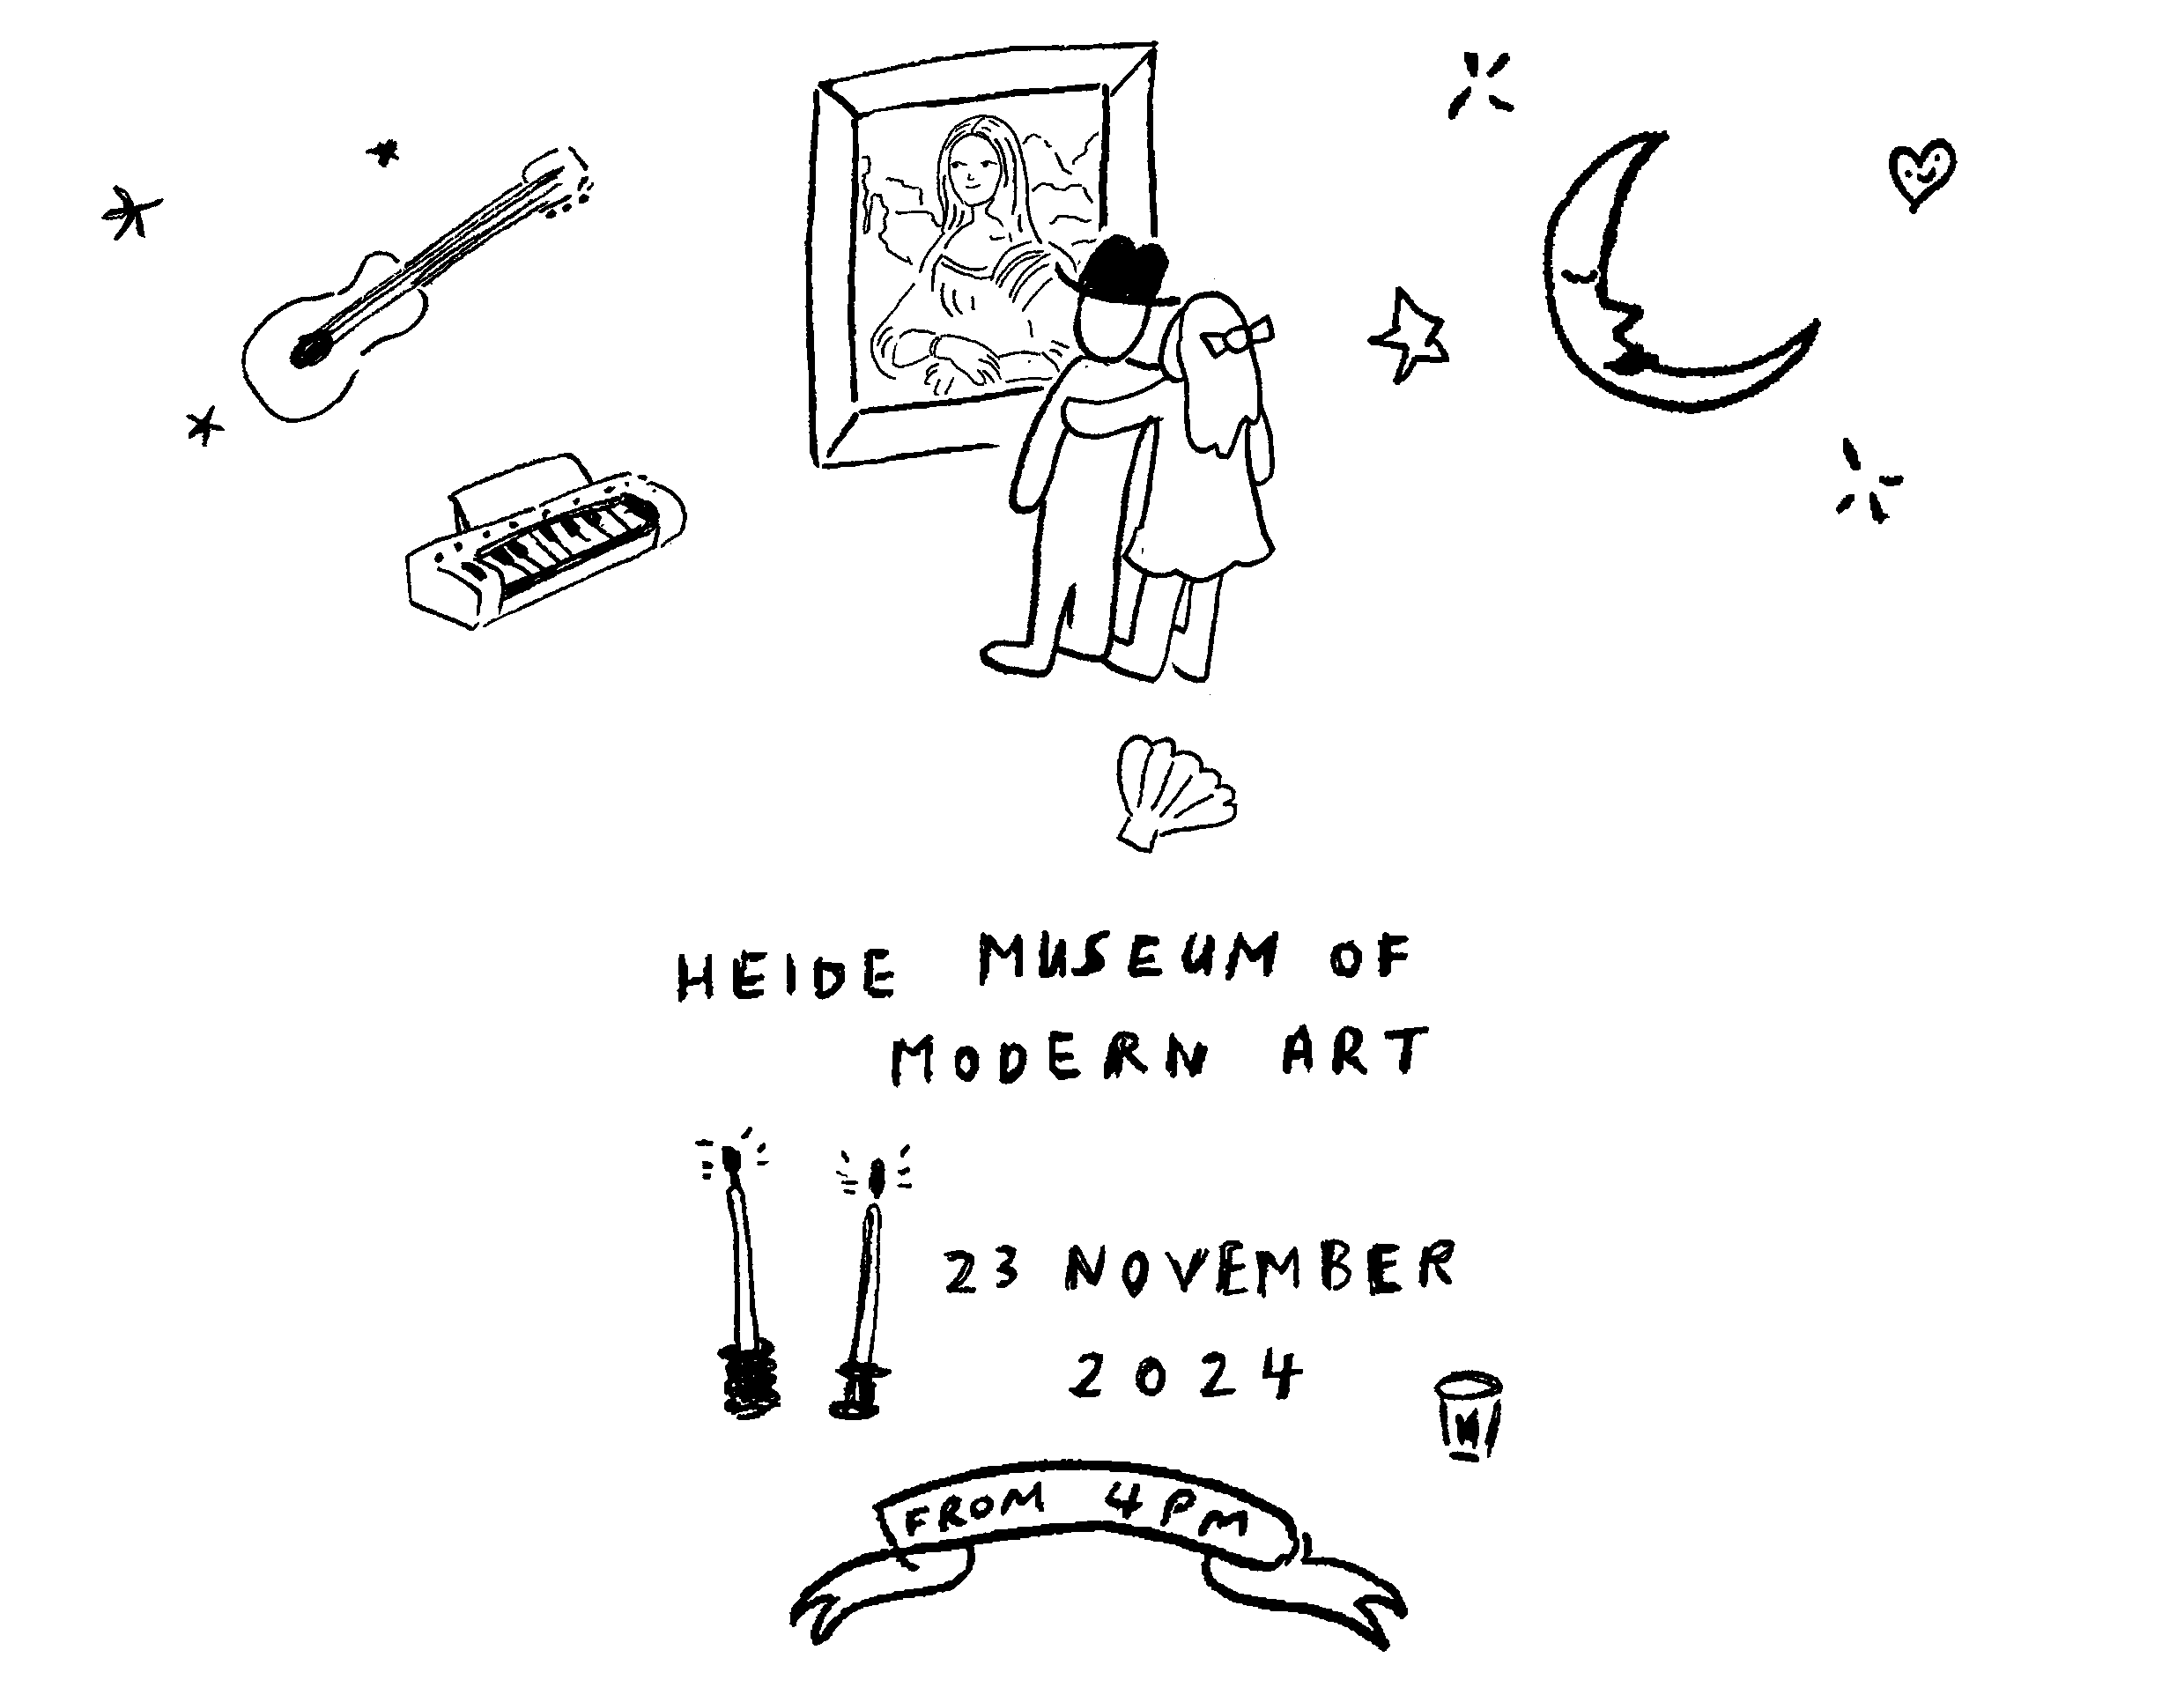 HEIDE MUSEUM OF
MODERN ART
23 NOVEMBER
2024
FROM 4PM